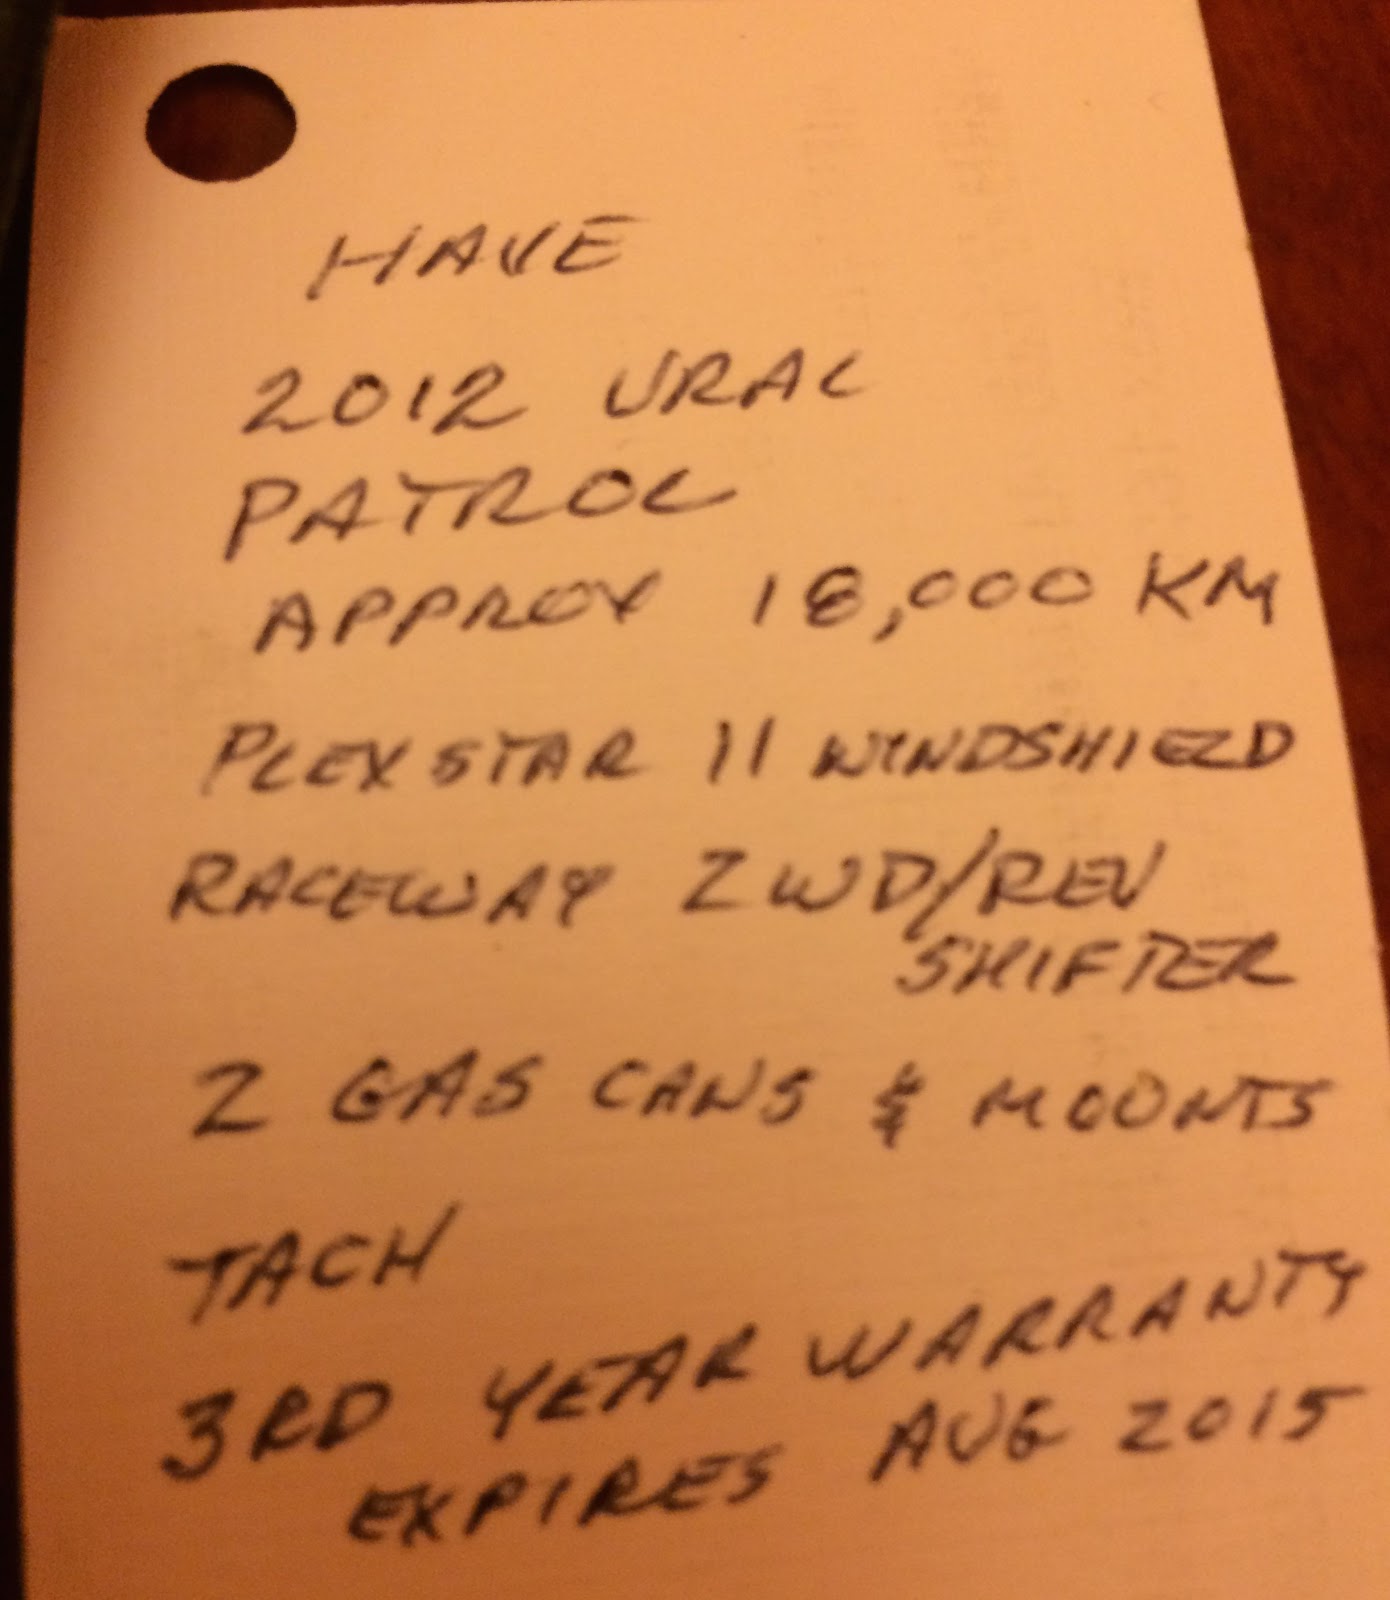 HAVE
2012 URAL
PATROL
APPROX 18,000 KM
PLEXSTAR 11 WINDSHIELD
RACEWAY 2WD/REV
SHIFTER
2 GAS CANS & MOUNTS
TACH
3RD YEAR WARRANTY
EXPIRES AUG 2015